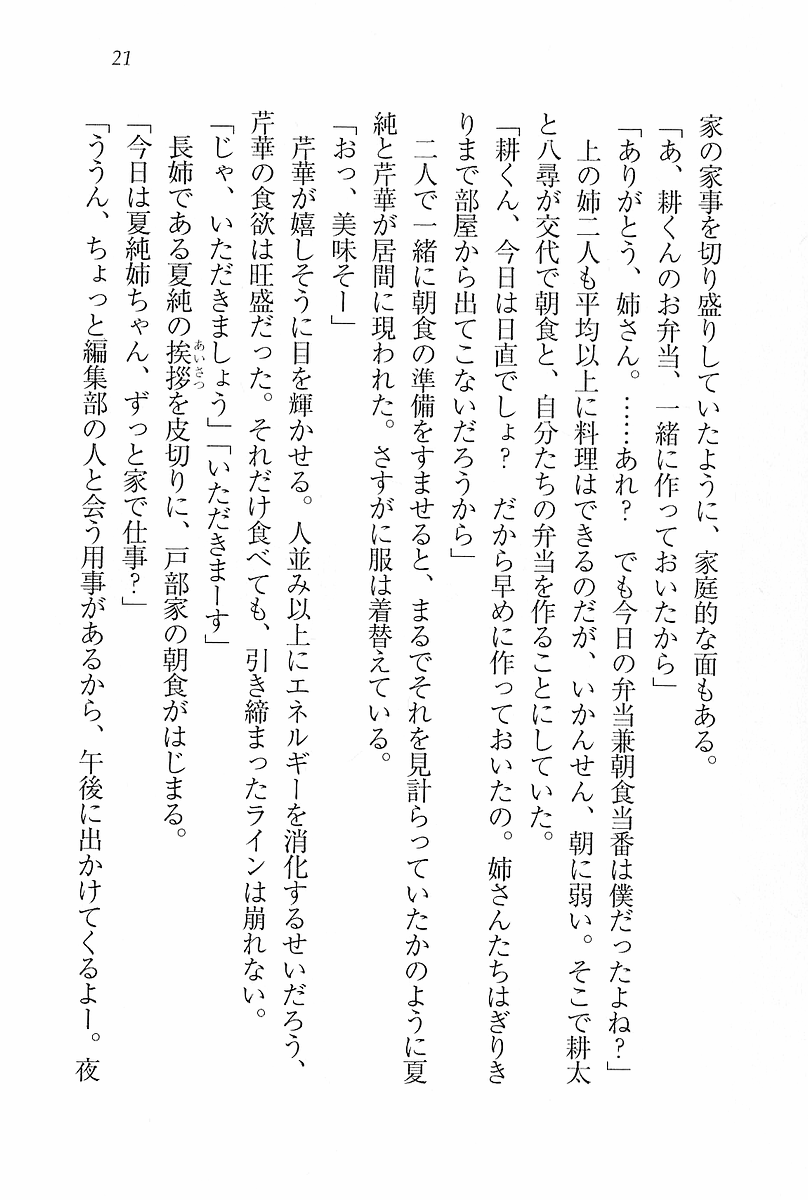 21
家の家事を切り盛りしていたように、家庭的な面もある。
「あ、耕くんのお弁当、一緒に作っておいたから」
「ありがとう、姉さん。……あれ？　でも今日の弁当兼朝食当番は僕だったよね？」
　上の姉二人も平均以上に料理はできるのだが、いかんせん、朝に弱い。そこで耕太
と八尋が交代で朝食と、自分たちの弁当を作ることにしていた。
「耕くん、今日は日直でしょ？　だから早めに作っておいたの。姉さんたちはぎりき
りまで部屋から出てこないだろうから」
　二人で一緒に朝食の準備をすませると、まるでそれを見計らっていたかのように夏
純と芹華が居間に現われた。さすがに服は着替えている。
「おっ、美味そー」
　芹華が嬉しそうに目を輝かせる。人並み以上にエネルギーを消化するせいだろう、
芹華の食欲は旺盛だった。それだけ食べても、引き締まったラインは崩れない。
「じゃ、いただきましょう」「いただきまーす」
　長姉である夏純の挨拶あいさつを皮切りに、戸部家の朝食がはじまる。
「今日は夏純姉ちゃん、ずっと家で仕事？」
「ううん、ちょっと編集部の人と会う用事があるから、午後に出かけてくるよー。夜